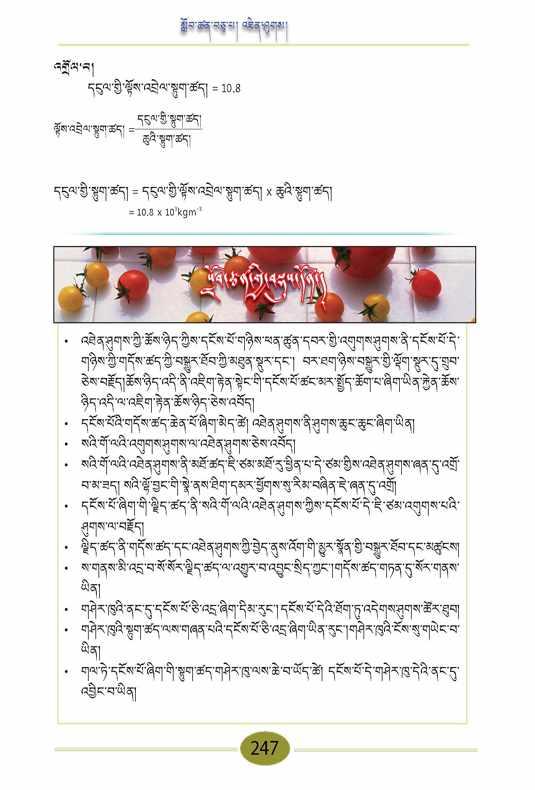 སློབ་ཚན་བཅུ་པ། འཐེན་ཤུགས།
འགྲོལ་བ།
དངུལ་གྱི་ལྟོས་འབྲེལ་སྟུག་ཚད། = 10.8
ལྟོས་འབྲེལ་སྟུག་ཚད། = དངུལ་གྱི་སྟུག་ཚད།
ཆུའི་སྟུག་ཚད།
དངུལ་གྱི་སྟུག་ཚད། = དངུལ་གྱི་ལྟོས་འབྲེལ་སྟུག་ཚད། x ཆུའི་སྟུག་ཚད།
= 10.8 x 10³kgm⁻³
ཁྱོད་ཅག་གིས་བསླབས་པ་ནི།
• འཐེན་ཤུགས་ཀྱི་ཆོས་ཉིད་ཀྱིས་དངོས་པོ་གཉིས་ཕན་ཚུན་དབར་གྱི་འགུགས་ཤུགས་ནི་དངོས་པོ་དེ་
གཉིས་ཀྱི་གདོས་ཚད་ཀྱི་བསྒྱུར་ཐོབ་ཀྱི་མཐུན་སྡུར་དང་། བར་ཐག་ཉིས་བསྒྱུར་གྱི་ལྡོག་སྡུར་དུ་གྲུབ་
ཅེས་བརྗོད།ཆོས་ཉིད་འདི་ནི་འཇིག་རྟེན་སྟེང་གི་དངོས་པོ་ཚང་མར་སྤྱོད་ཆོག་པ་ཞིག་ཡིན་རྐྱེན་ཆོས་
ཉིད་འདི་ལ་འཇིག་རྟེན་ཆོས་ཉིད་ཅེས་འབོད།
• དངོས་པོའི་གདོས་ཚད་ཆེན་པོ་ཞིག་མེད་ཚེ། འཐེན་ཤུགས་ནི་ཤུགས་ཆུང་ཆུང་ཞིག་ཡིན།
• སའི་གོ་ལའི་འགུགས་ཤུགས་ལ་འཐེན་ཤུགས་ཅེས་འབོད།
• སའི་གོ་ལའི་འཐེན་ཤུགས་ནི་མཐོ་ཚད་ཇི་ཙམ་མཐོ་རུ་ཕྱིན་པ་དེ་ཙམ་གྱིས་འཐེན་ཤུགས་ཞན་དུ་འགྲོ་
བ་མ་ཟད། སའི་ལྷོ་བྱང་གི་སྣེ་ནས་ཐིག་དམར་ཕྱོགས་སུ་རིམ་བཞིན་ཇེ་ཞན་དུ་འགྲོ།
• དངོས་པོ་ཞིག་གི་ལྗིད་ཚད་ནི་སའི་གོ་ལའི་འཐེན་ཤུགས་ཀྱིས་དངོས་པོ་དེ་ཇི་ཙམ་འགུགས་པའི་
ཤུགས་ལ་བརྗོད།
• ལྗིད་ཚད་ནི་གདོས་ཚད་དང་འཐེན་ཤུགས་ཀྱི་བྱེད་ནུས་འོག་གི་མྱུར་སྣོན་གྱི་བསྒྱུར་ཐོབ་དང་མཚུངས།
• ས་གནས་མི་འདྲ་བ་སོ་སོར་ལྗིད་ཚད་ལ་འགྱུར་བ་འབྱུང་སྲིད་ཀྱང་།གདོས་ཚད་གཏན་དུ་སོར་གནས་
ཡིན།
• གཤེར་ཁུའི་ནང་དུ་དངོས་པོ་ཅི་འདྲ་ཞིག་དིམ་རུང་།དངོས་པོ་དེའི་ཐོག་ཏུ་འདེགས་ཤུགས་ཚོར་ཐུབ།
• གཤེར་ཁུའི་སྟུག་ཚད་ལས་གཞན་པའི་དངོས་པོ་ཅི་འདྲ་ཞིག་ཡིན་རུང་།གཤེར་ཁུའི་ངོས་སུ་གཡེང་བ་
ཡིན།
• གལ་ཏེ་དངོས་པོ་ཞིག་གི་སྟུག་ཚད་གཤེར་ཁུ་ལས་ཆེ་བ་ཡོད་ཚེ། དངོས་པོ་དེ་གཤེར་ཁུ་དེའི་ནང་དུ་
འབྱིང་བ་ཡིན།
247